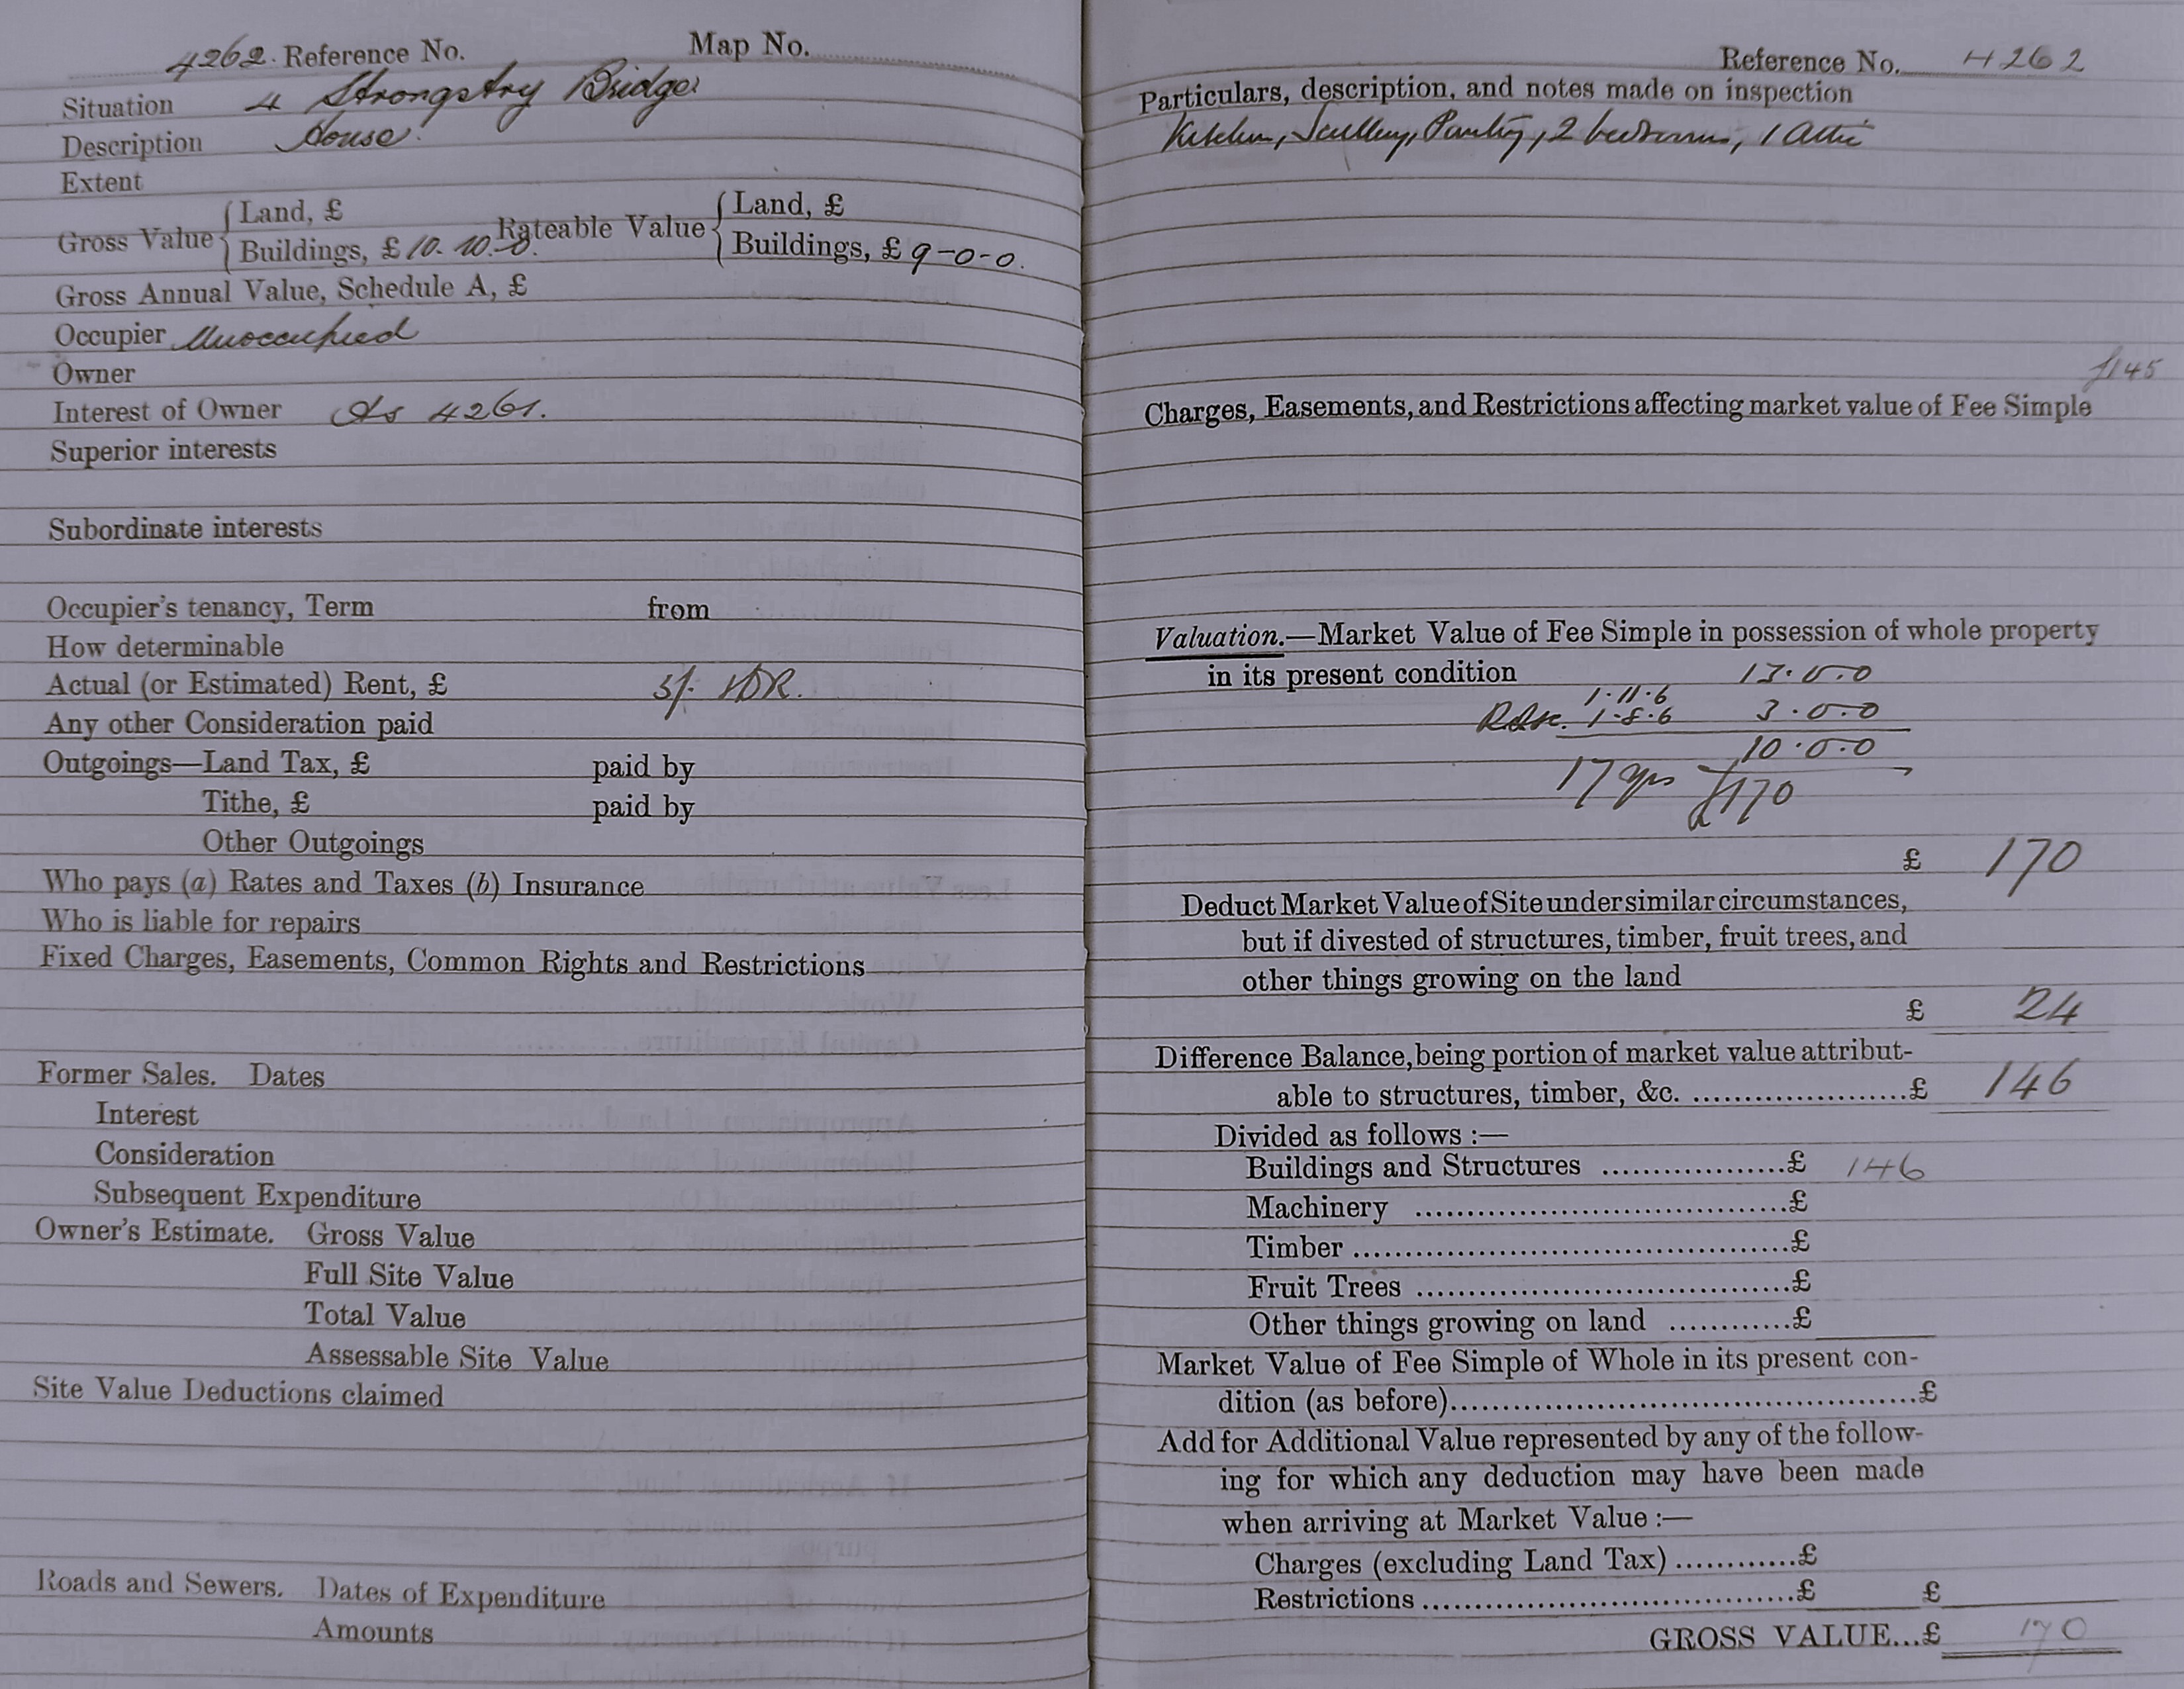 4262. Reference No. Map No.
Situation 4 Strongstry Bridge
Description House.
Extent
Gross Value { Land, £ Rateable Value { Land, £
Buildings, £ 10-10-0. Buildings, £ 9-0-0.
Gross Annual Value, Schedule A, £
Occupier Unoccupied
Owner
Interest of Owner As 4261.
Superior interests
Subordinate interests
Occupier's tenancy, Term from
How determinable
Actual (or Estimated) Rent, £ 5/-
Any other Consideration paid
Outgoings—Land Tax, £ paid by
Tithe, £ paid by
Other Outgoings
Who pays (a) Rates and Taxes (b) Insurance
Who is liable for repairs
Fixed Charges, Easements, Common Rights and Restrictions
Former Sales. Dates
Interest
Consideration
Subsequent Expenditure
Owner's Estimate. Gross Value
Full Site Value
Total Value
Assessable Site Value
Site Value Deductions claimed
Roads and Sewers. Dates of Expenditure
Amounts
Reference No. 4262
Particulars, description, and notes made on inspection
Kitchen, Scullery, Pantry, 2 bedrooms, 1 Attic
£145
Charges, Easements, and Restrictions affecting market value of Fee Simple
Valuation.—Market Value of Fee Simple in possession of whole property
in its present condition 13.0.0
1.11.6
1.8.6 3.0.0
10.0.0
17 yrs £170
£ 170
Deduct Market Value of Site under similar circumstances,
but if divested of structures, timber, fruit trees, and
other things growing on the land
£ 24
Difference Balance, being portion of market value attribut-
able to structures, timber, &c. ......................£ 146
Divided as follows :—
Buildings and Structures ..................£ 146
Machinery ....................................£
Timber ..........................................£
Fruit Trees ....................................£
Other things growing on land ............£
Market Value of Fee Simple of Whole in its present con-
dition (as before).............................................£
Add for Additional Value represented by any of the follow-
ing for which any deduction may have been made
when arriving at Market Value :—
Charges (excluding Land Tax) ............£
Restrictions ....................................£ £
GROSS VALUE...£ 170